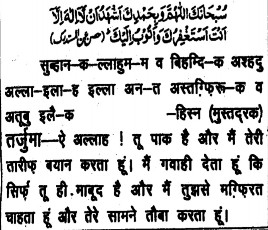 سُبْحَانَكَ اللّٰهُمَّ وَبِحَمْدِكَ اَشْهَدُ اَنْ لَّا اِلٰهَ اِلَّا
اَنْتَ اَسْتَغْفِرُكَ وَاَتُوْبُ اِلَيْكَ
सुब्हान-क-ल्लाहुम-म व बिहम्दि-क अश्हदु
अल्ला-इला-ह इल्ला अन-त अस्तग़्फ़िरू-क व
अतूबु इलै-क -हिस्न (मुस्तदरक)
तर्जुमा-ऐ अल्लाह ! तू पाक है और मैं तेरी
तारीफ़ बयान करता हूं। मैं गवाही देता हूं कि
सिर्फ़ तू ही माबूद है और मैं तुझसे मग़्फ़िरत
चाहता हूं और तेरे सामने तौबा करता हूं।